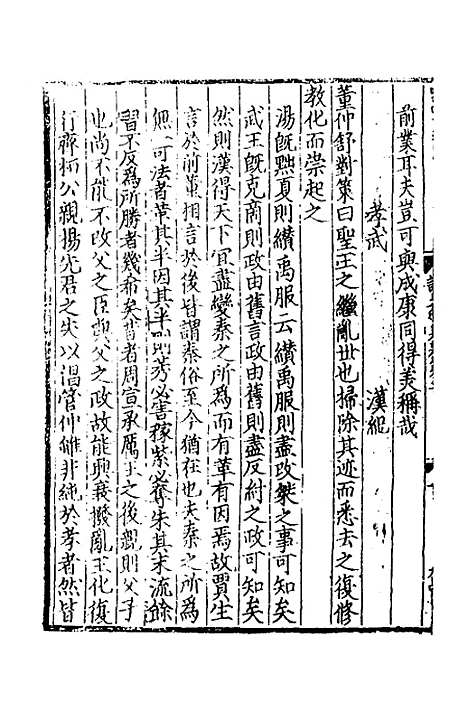 前業耳夫豈可與成康同得美稱哉
孝武　漢紀
董仲舒對策曰聖王之繼亂世也掃除其迹而悉去之復修
教化而崇起之
湯旣黜夏則纉禹服云纉禹服則盡改桀之事可知矣
武王旣克商則政由舊言政由舊則盡反紂之政可知矣
然則漢得天下宜盡變秦之所爲而有革有因焉故賈生
言於前董相言於後皆謂秦俗至今猶在也夫秦之所爲
無一可法者革其半因其半則莠必害稼紫必奪朱其末流餘
習不反爲所勝者幾希矣昔者周宣承厲王之後親則父子
也尚不能不改父之臣與父之政故能興衰撥亂王化復
行齊桓公親揚先君之失以淐管仲雖非純於孝者然皆